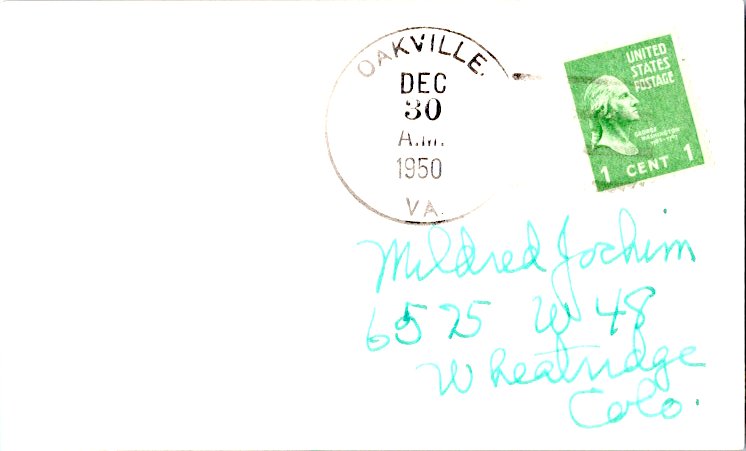 OAKVILLE.
DEC
30
A.M.
1950
VA.
UNITED
STATES
POSTAGE
GEORGE
WASHINGTON
1 CENT 1
Mildred Jochim
6575 W 48
Wheatridge
Colo.